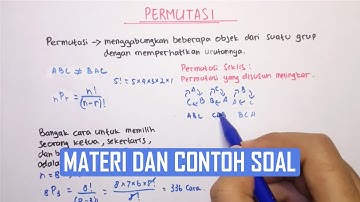 PERMUTASI
Permutasi → menggabungkan beberapa objek dari suatu grup
dengan memperhatikan urutannya.
ABC ≠ BAC
5! = 5x4x3x2x1
nPr = n!
(n-r)!
Permutasi Siklis :
Permutasi yang disusun melingkar.
A
C B
B A
B
ABC
BCA
Banyak cara untuk memilih
seorang ketua, sekertaris,
dan
MATERI DAN CONTOH SOAL
n = 8
8P3 = 8!
(8-3)!
= 8x7x6x5!
= 336 cara.